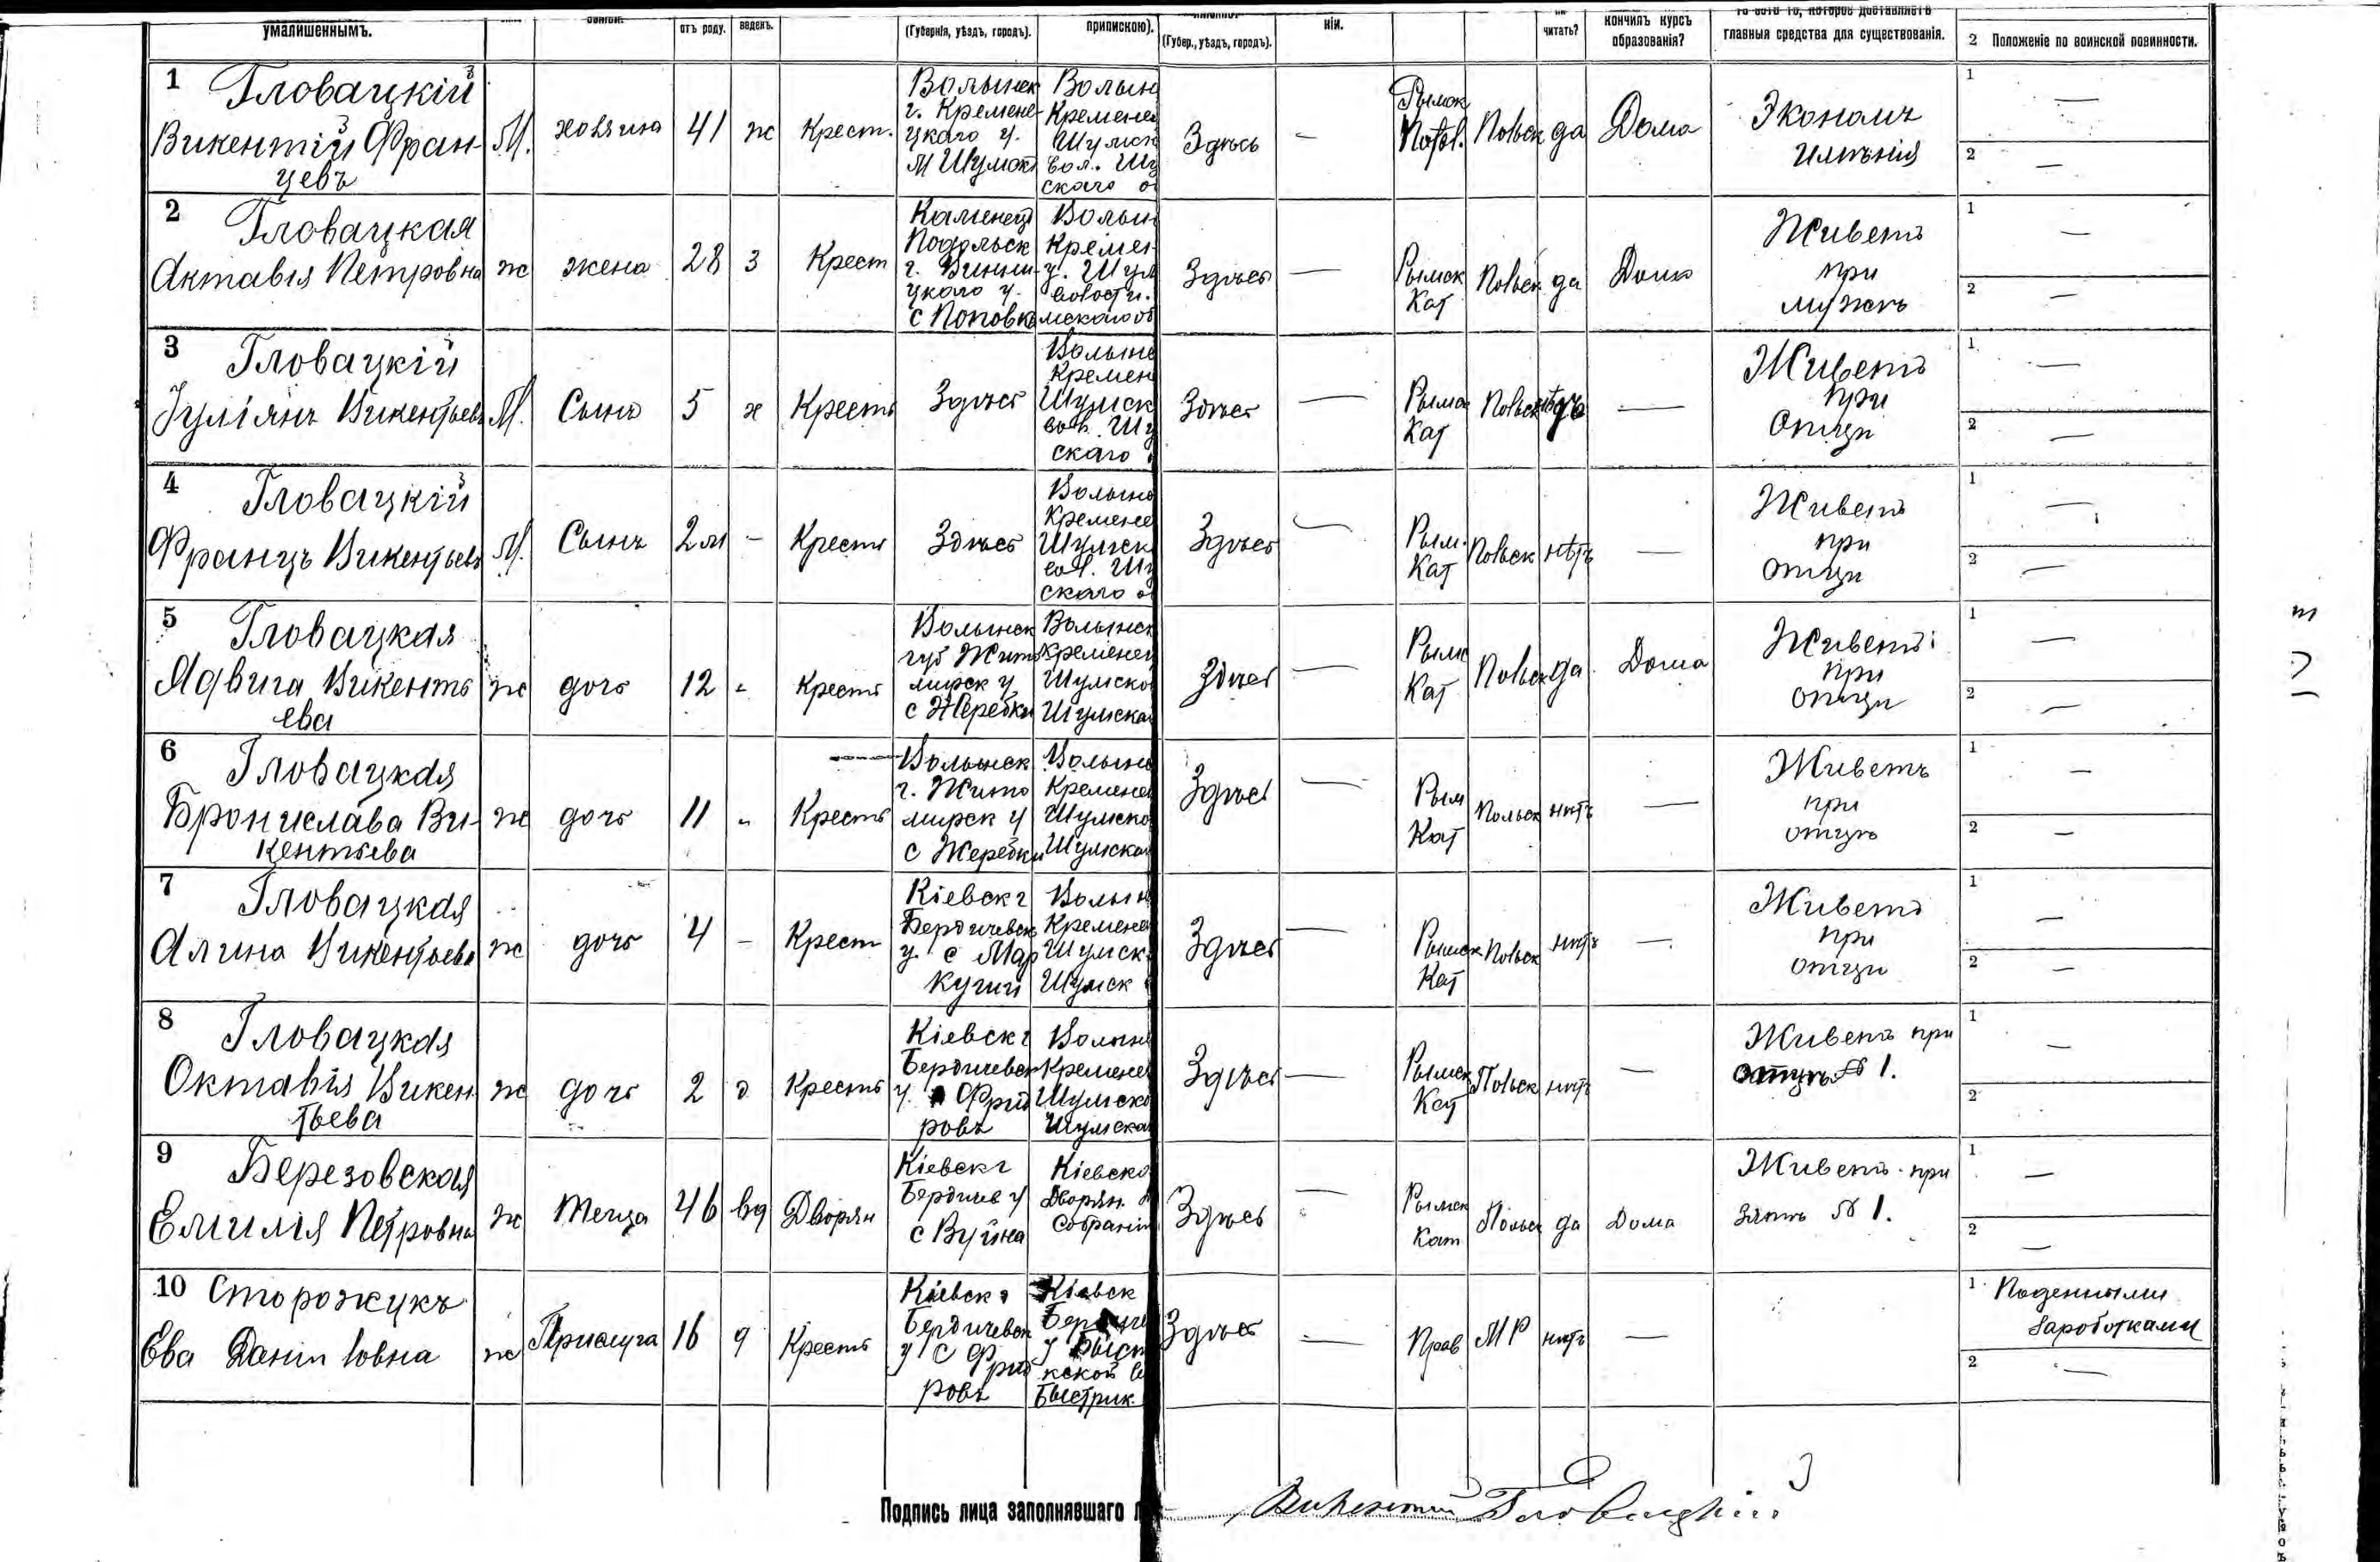 умалишеннымъ. отъ роду. вѣдекъ. (Губернія, уѣздъ, городъ). припискою). (Губер., уѣздъ, городъ). ніи. читать? кончилъ курсъ образованія? главныя средства для существованія. 2 Положеніе по воинской повинности.
1 Гловацкій
Викентій Фран-
цевъ
М. хозяинъ 41 ж Крест.
Волынск
г. Кремене-
цкаго у.
М Шумск
Волын
Кременец
Шумск
вол. Шу
скаго о
Здѣсь — Рымск Катол. Польск да Дома
Экономъ
имѣнія
1 —
2 —
2 Гловацкая
Актавія Петровна
ж жена 28 з Крест
Каменец
Подольск
г. Винни-
цкаго у.
с Поповка
Волын
Кремен
у. Шум
волости.
мскаго об
Здѣсь — Рымск Кат Польск да Дома
Живетъ
при
мужѣ
1 —
2 —
3 Гловацкій
Іуліянъ Викентьевъ
М. Сынъ 5 х Крестъ
Здѣсь
Волынс
Кремен
Шумск
вол. Шу
скаго
Здѣсь — Рымск Кат Польск —
Живетъ
при
Отци
1 —
2 —
4 Гловацкій
Францъ Викентьевъ
М. Сынъ 2м - Крестъ
Здѣсь
Волынс
Кременец
Шумск
вол. Шу
скаго о
Здѣсь — Рым. Кат Польск нѣтъ —
Живетъ
при
отци
1 —
2 —
5 Гловацкая
Ядвига Викенть
ева
ж дочь 12 - Крестъ
Волынск
губ Жито
мирск у
с Жеребки
Волынск
Кременец
Шумско
Шумска
Здѣсь — Рымс Кат Польск да Дома
Живетъ
при
отци
1 —
2 —
6 Гловацкая
Бронислава Ви-
кентьева
ж дочь 11 " Крестъ
Волынск
г. Жито
мирск у
с Жеребки
Волынс
Кременец
Шумско
Шумска
Здѣсь — Рым Кат Польск нѣтъ —
Живетъ
при
отцѣ
1 —
2 —
7 Гловацкая
Алина Викентьева
ж дочь 4 - Крест
Кіевск г
Бердичевск
у. с Мар
кучи
Волын
Кременец
Шумск
Шумск
Здѣсь — Рымск Кат Польск нѣтъ —
Живетъ
при
отци
1 —
2 —
8 Гловацкая
Октавія Викен
тьева
ж дочь 2 д Крестъ
Кіевск г
Бердичевск
у.
ровъ
Волын
Кременец
Шумско
Шумска
Здѣсь — Рымск Кат Польск нѣтъ —
Живетъ при
отцѣ № 1.
1 —
2 —
9 Березовская
Емилія Петровна
ж Теща 46 вд Дворян
Кіевск г
Бердичев у
с Вуйна
Кіевско
Дворян.
Собрани
Здѣсь — Рымск Кат Польск да Дома
Живетъ при
зятѣ № 1.
1 —
2 —
10 Сторожукъ
Ева Даніиловна
ж Прислуга 16 д Крестъ
Кіевск г
Бердичевск
у с Фрид
ровъ
Кіевск
Бердиче
у Быст
кской в
Быстрик.
Здѣсь — Прав МР нѣтъ —
1 Поденными
заработками
2 —
Подпись лица заполнявшаго
Викентій Гловацкій